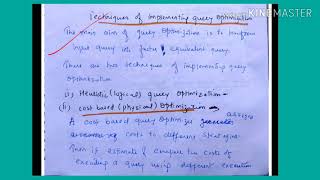 KINEMASTER
Techniques of Implementing query Optimization
The main aim of query optimization is to transform
input query into faster equivalent query.
There are two techniques of implementing query
optimization
(i) Heuristic (logical) query optimization -
(ii) cost based (physical) optimization
assigns
A cost based query optimizer generates
costs to different strategies
Then is estimate & compare the costs of
executing a query using different execution